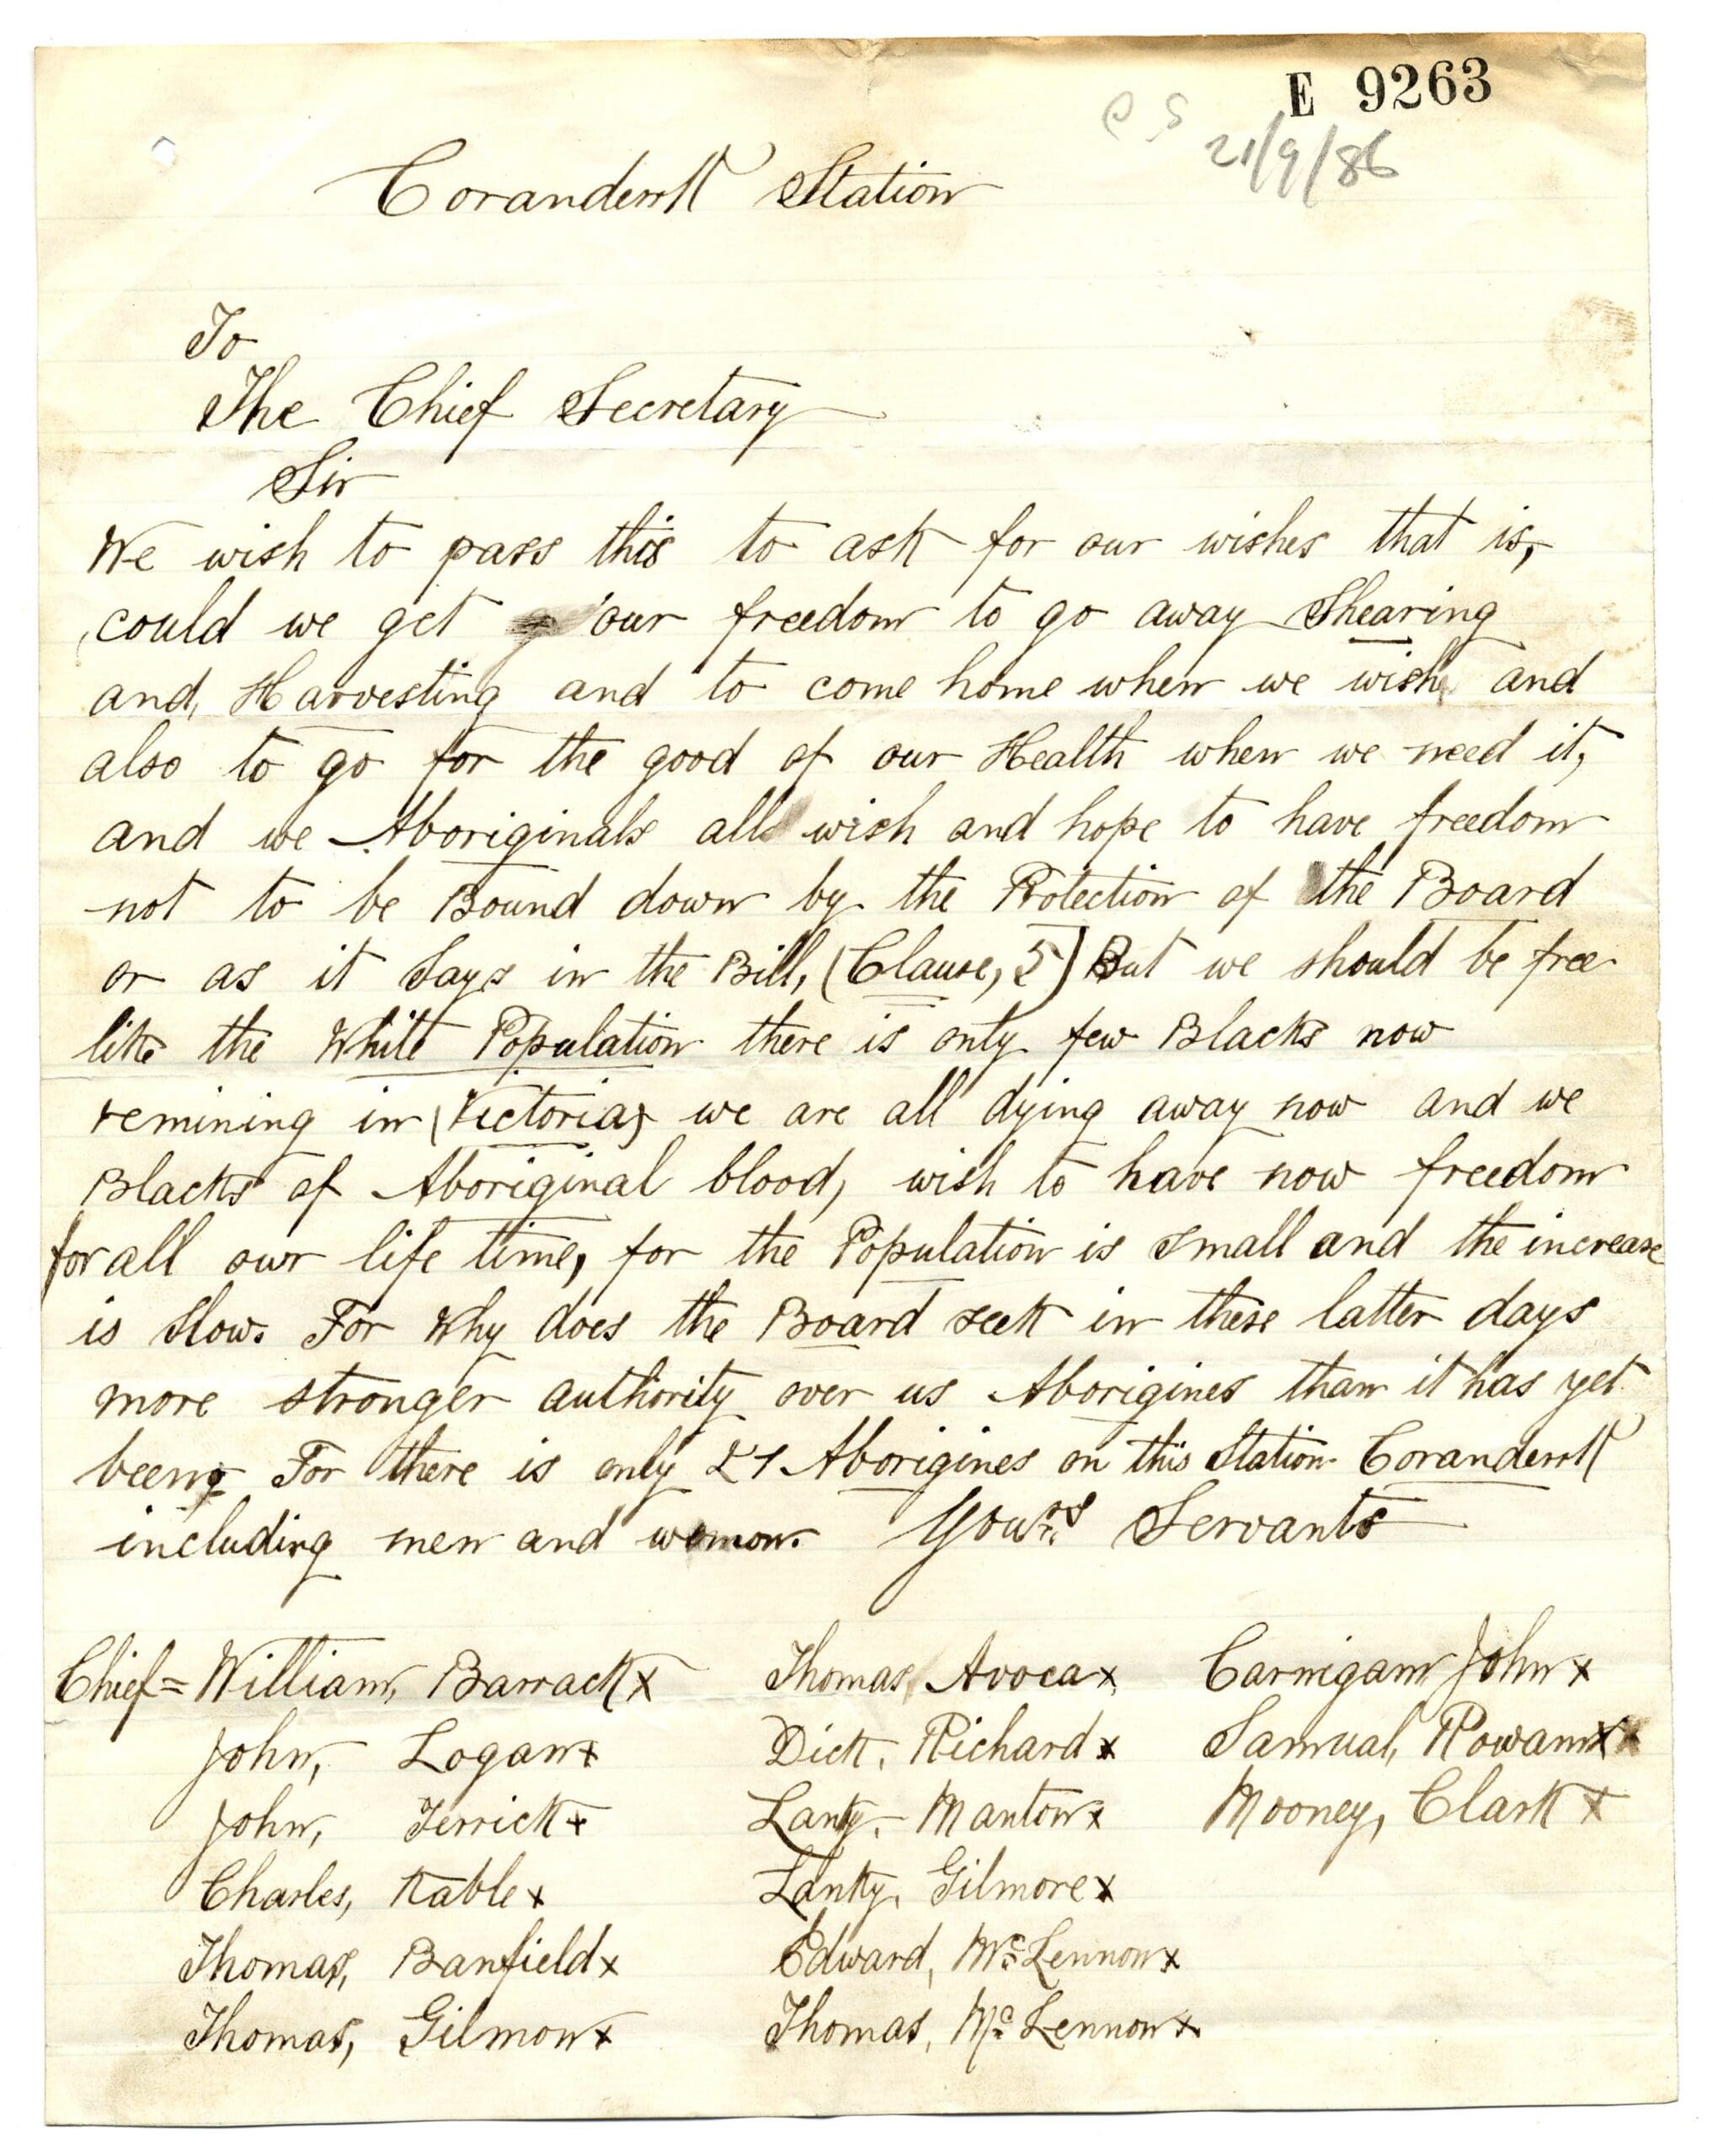 E 9263
C S
21/9/86
Coranderrk Station
To
The Chief Secretary
Sir
We wish to pass this to ask for our wishes that is,
could we get our freedom to go away Shearing
and, Harvesting and to come home when we wish and
also to go for the good of our Health when we need it,
and we Aboriginals all wish and hope to have freedom
not to be Bound down by the Protection of the Board
or as it Says in the Bill, (Clause, 5) But we should be free
like the White Population there is only few Blacks now
remining in (Victoria) we are all dying away now and we
Blacks of Aboriginal blood, wish to have now freedom
for all our life time, for the Population is small and the increase
is slow. For Why does the Board seek in these latter days
more stronger authority over us Aborigines than it has yet
being For there is only 21 Aborigines on this Station Coranderrk
including men and women. Yours Servants
Chief = William, Barrack x Thomas, Avoca x Carnigam John x
John, Logan x Dick, Richard x Samual, Rowan x
John, Terrick x Lanky, Manton x Mooney, Clark x
Charles, Kable x Lanky, Gilmore x
Thomas, Banfield x Edward, McLennon x
Thomas, Gilmon x Thomas, McLennon x